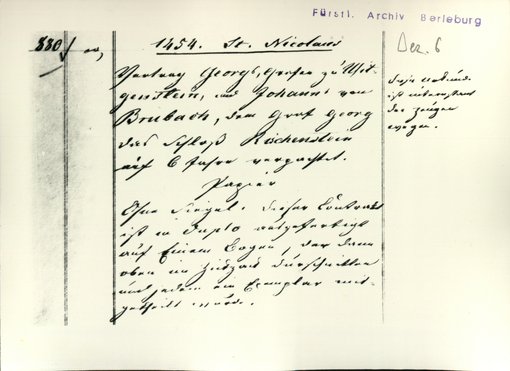 Fürstl. Archiv Berleburg
880
1454. St. Nicolaus
Dez. 6
Vertrag Georgs, Grafen zu Wit-
genstein, und Johanns von
Brubach, dem Graf Georg
das Schloß Richenstein
auf 6 Jahre verpachtet.
Papier
Ohne Siegel. Dieser Contract
ist in Duplo ausgefertigt
auf Einem Bogen, der dann
oben im Zickzack durschnitten
und jedem ein Exemplar mit-
getheilt wurde.
diese
ist
der Zeugen
wegen.